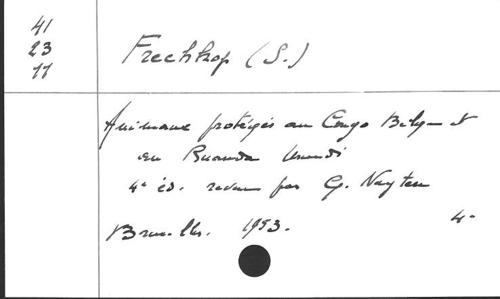 41
23
11
Frechkop (S.)
Animaux protégés au Congo Belge et
au Ruanda Urundi
4e éd. revue par G.
Bruxelles. 1953. 4°